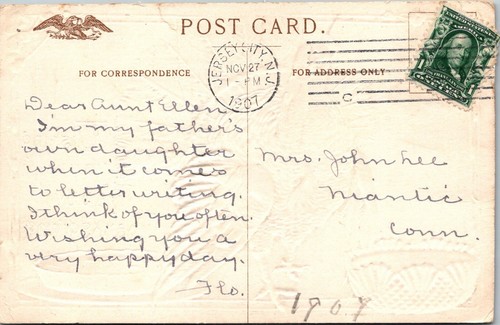 POST CARD.
JERSEY CITY, N.J.
NOV 27
1 - PM
1907
C
FOR CORRESPONDENCE
FOR ADDRESS ONLY
1
1
Dear Aunt Ellen
I'm my father's
own daughter
when it comes
to letter writing.
I think of you often.
Wishing you a
very happy day.
Flo.
Mrs. John Lee
Niantic
Conn.
1907